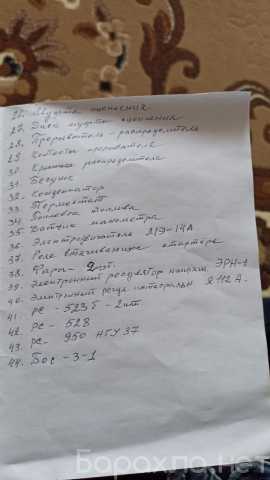 26. Муфта сцепления
27. Диск муфты сцепления
28. Прерыватель-распределитель
29. Контакты прерывателя
30. Крышка распределителя
31. Бегунок
32. Конденсатор
33. Термостат
34. топлива
35. Датчик манометра
36. Электродвигатель
37. Реле втягивающее стартера
38. Фара - 2шт.
39. Электронный регулятор напряж. ЭРН-1
40. Электронный интегральн Я 112 А.
41. РС - 523 б - 2шт
42. РС - 528
43. РС- 950
44. Бос -3-1
Барахла.нет